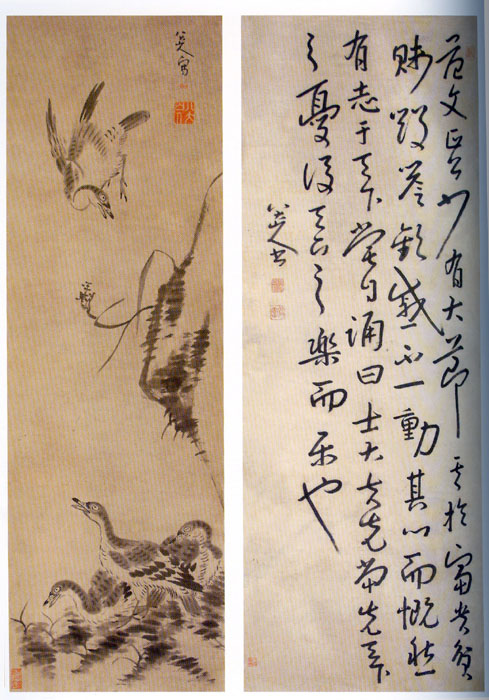 范文正少有大節其於富貴貧
賤毀譽歡戚不一動其心而慨然
有志于天下嘗自誦曰士大夫先當先天下
之憂後天下之樂而樂也
八大山人書
八大山人寫